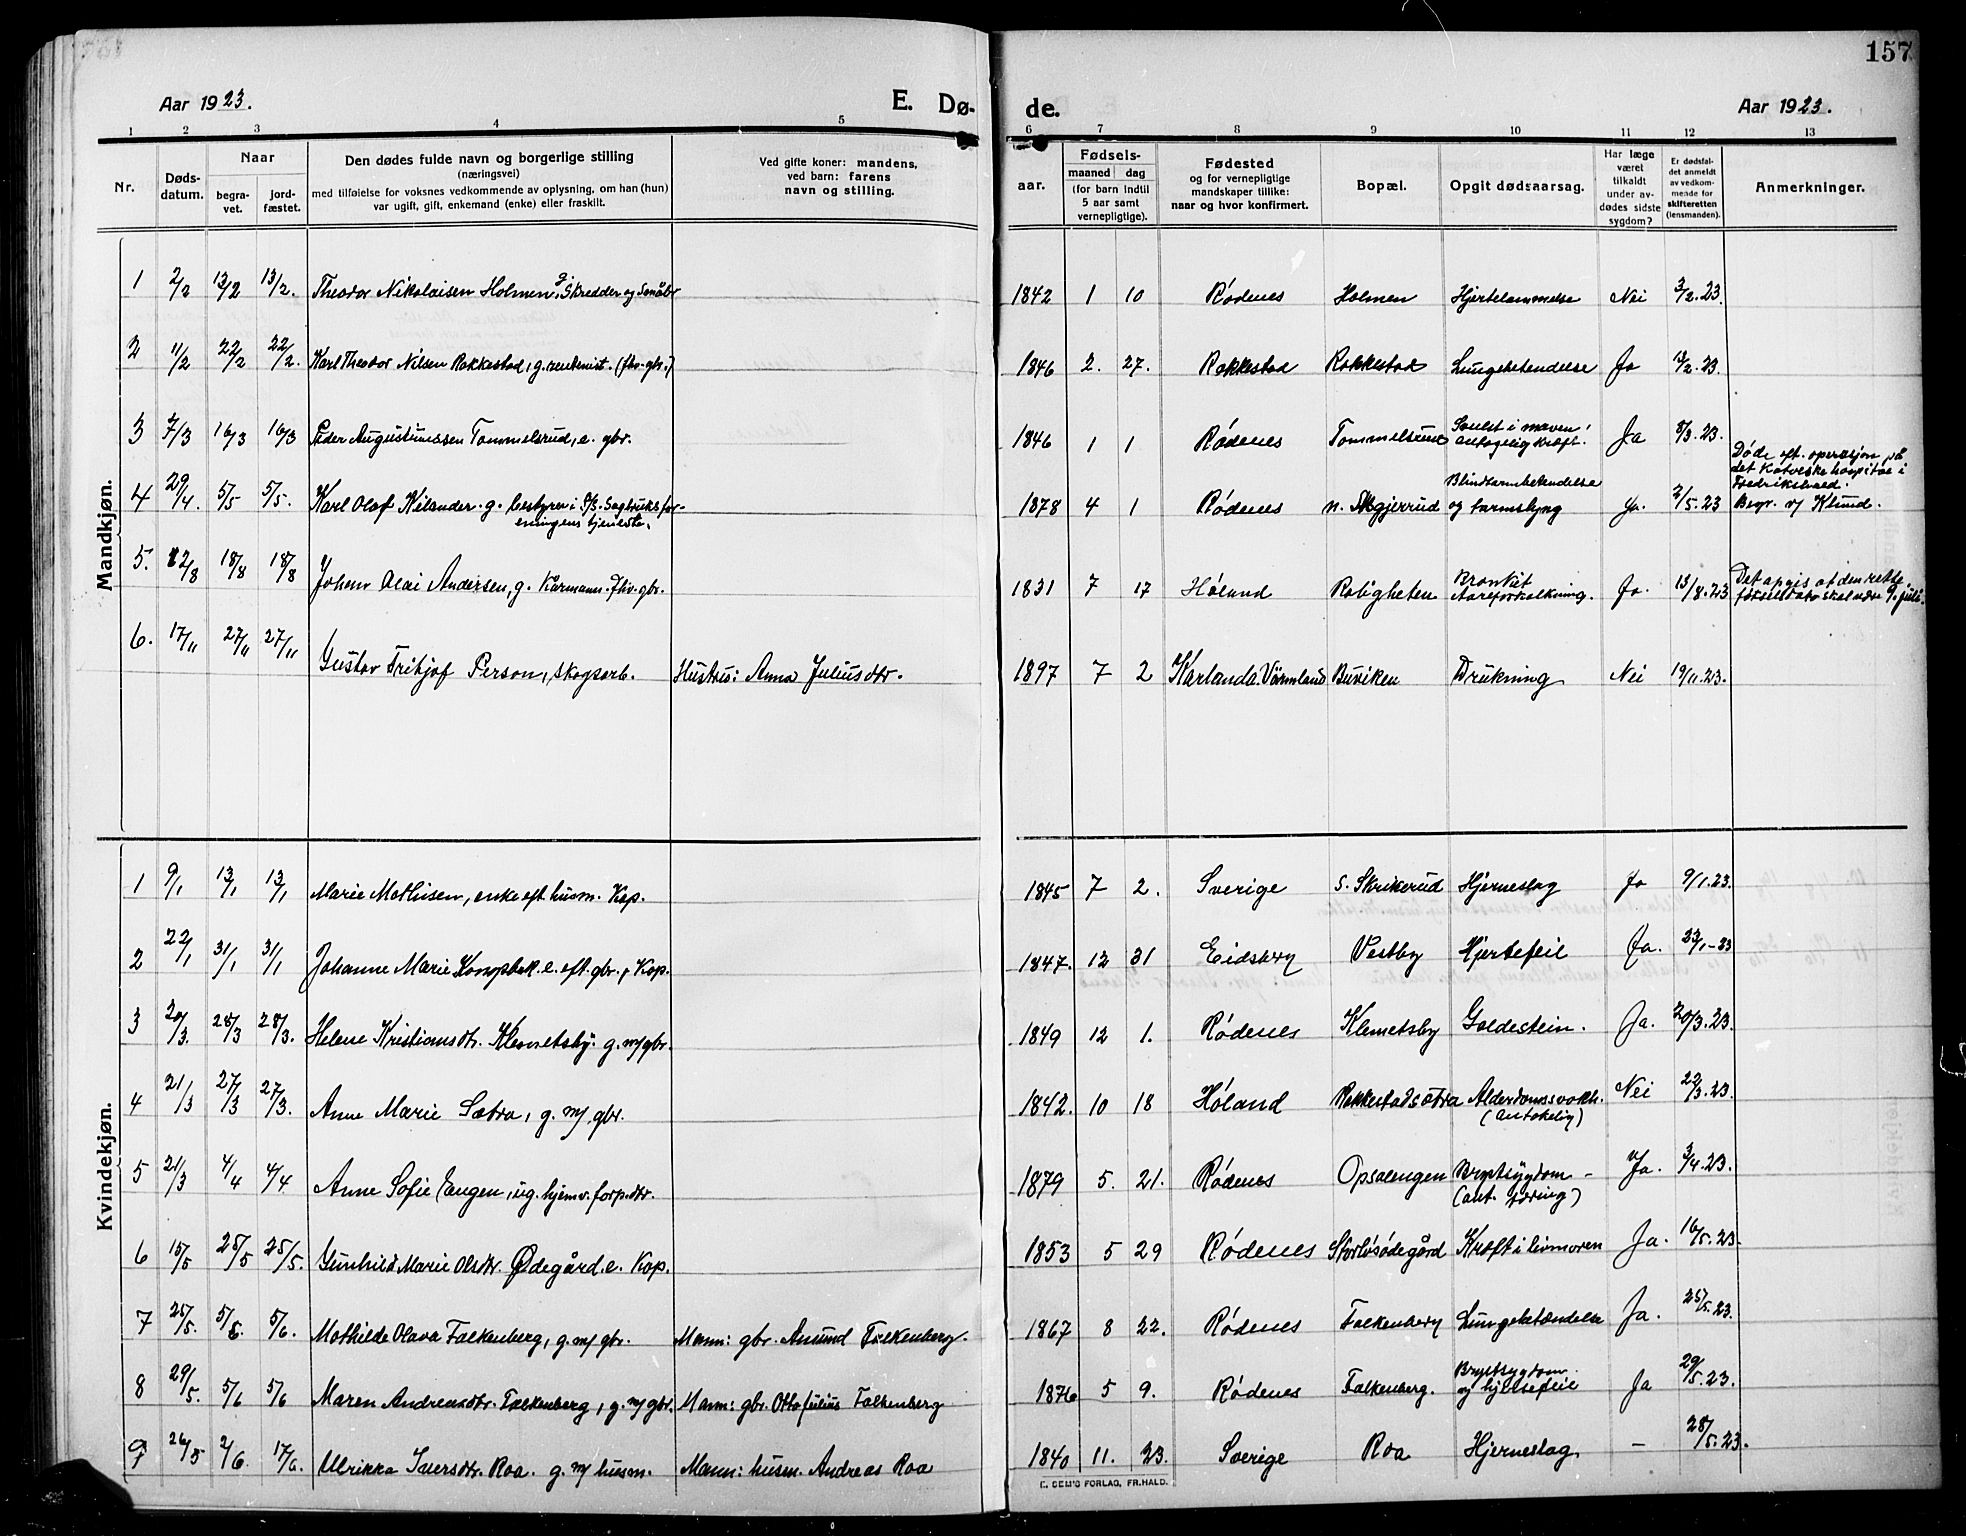 157
Aar 1923.
E. Dø-
de.
Aar 1923.
1 2 3 4 5
6 7 8 9 10 11 12 13
Nr.
Døds-
datum.
Naar
begra-
vet.
jord-
fæstet.
Den dødes fulde navn og borgerlige stilling
(næringsvei)
med tilføielse for voksnes vedkommende av oplysning, om han (hun)
var ugift, gift, enkemand (enke) eller fraskilt.
Ved gifte koner: mandens,
ved barn: farens
navn og stilling.
aar.
Fødsels-
maaned dag
(for barn indtil
5 aar samt
vernepligtige).
Fødested
og for vernepligtige
mandskaper tillike:
naar og hvor konfirmert.
Bopæl.
Opgit dødsaarsag.
Har læge
været
tilkaldt
under av-
dødes sidste
sygdom?
Er dødsfal-
det anmeldt
av vedkom-
mende for
skifteretten
(lensmanden).
Anmerkninger.
Mandkjøn.
1 2/2 13/2 13/2. Theodor Nikolaisen Holmen, g. Skredder og Småbr 1842 1 10 Rødenes Holmen Hjertelammelse Nei 3/2.23.
2 11/2 22/2 22/2. Karl Theodor Nilsen Rakkestad, g. rentenist. (fhv. gbr.) 1846 2. 27. Rakkestad Rakkestad Lungebetendelse Ja 12/2.23.
3 7/3 16/3 16/3 Peder Augustinussen Tommelsrud, e. gbr. 1846 1 1 Rødenes Tommelsrud Svulst i maven, antagelig kræft. Ja 8/3.23.
4 29/4. 5/5 5/5. Karl Olaf Kilander. g. bestyrer i A/S. Sagbruksfor-
eningens tjeneste. 1878 4 1 Rødenes n. Skgjerrud Blindtarmbetendelse
og tarmslyng Ja. 2/5.23
Døde eft. operasjon på
det Katolske hospital i
Fredrikshald.
Begr. v/ Klund.
5. 12/8 18/8 18/8 Johan Olai Andersen, g. Kårmann. fhv. gbr. 1831 7 17 Høland Roligheten Bronkit
Aareforkalkning. Ja. 13/8.23
Det opgis at den rette
fødselsdato skal være 9. juli.
6. 17/11 27/11 27/11 Gustav Fritjof Person, skogsarb. Hustru: Anna Juliusdtr. 1897 7 2 Karlanda. Värmland Buviken Drukning Nei 19/11.23.
Kvindekjøn.
1 9/1 13/1 13/1 Marie Mathisen, enke eft. husm. Kop. 1845 7 2. Sverige S. Skrikerud Hjerneslag Ja 9/1.23.
2 22/1 31/1 31/1 Johanne Marie e. eft. gbr., Kap. 1847. 12 31 Eidsberg Vestby Hjertefeil Ja. 23/1-23
3 20/3. 28/3 28/3. Helene Kristiansdtr. Klemetsby. g. m/ gbr. 1849 12 1. Rødenes Klemetsby Galdestein. Ja. 20/3.23.
4 21/3 27/3 27/3. Anne Marie Sætra, g. m/ gbr. 1842. 10 18 Høland Rakkestadsætra Alderdomssvakh.
(antakelig) Nei 22/3.23.
5 21/3 4/4 4/4 Anne Sofie Engen, ug. hjemv. forp. dtr. 1879 5. 21. Rødenes Opsalengen Brystsygdom -
(ant. tæring) Ja. 3/4.23.
6 15/5 25/5 25/5. Gunhild Marie Olsdtr. Ødegård. e. Kap. 1853 5 29 Rødenes Storløsødegård Kræft i livmoren Ja. 16/5.23.
7 25/5. 5/6. 5/6. Mathilde Olava Falkenberg, g. m/ gbr. Mann: gbr. Amund Falkenberg. 1867 8 22. Rødenes Falkenberg Lungebetændelse Ja. 25/5.23.
8 29/5. 5/6 5/6 Maren Andreasdtr. Falkenberg, g. m/ gbr. Mann: gbr. Otto Julius Falkenberg 1876 5 9. Rødenes Falkenberg. Brystsygdom
og hjertefeil Ja 29/5.23.
9 26/5 2/6 17/6. Ulrikka Iversdtr. Roa. g. m/ husm. Mann: husm. Andreas Roa 1840 11. 23. Sverige Roa Hjerneslag - 28/5.23.
E. SEM'S FORLAG, FR.HALD.